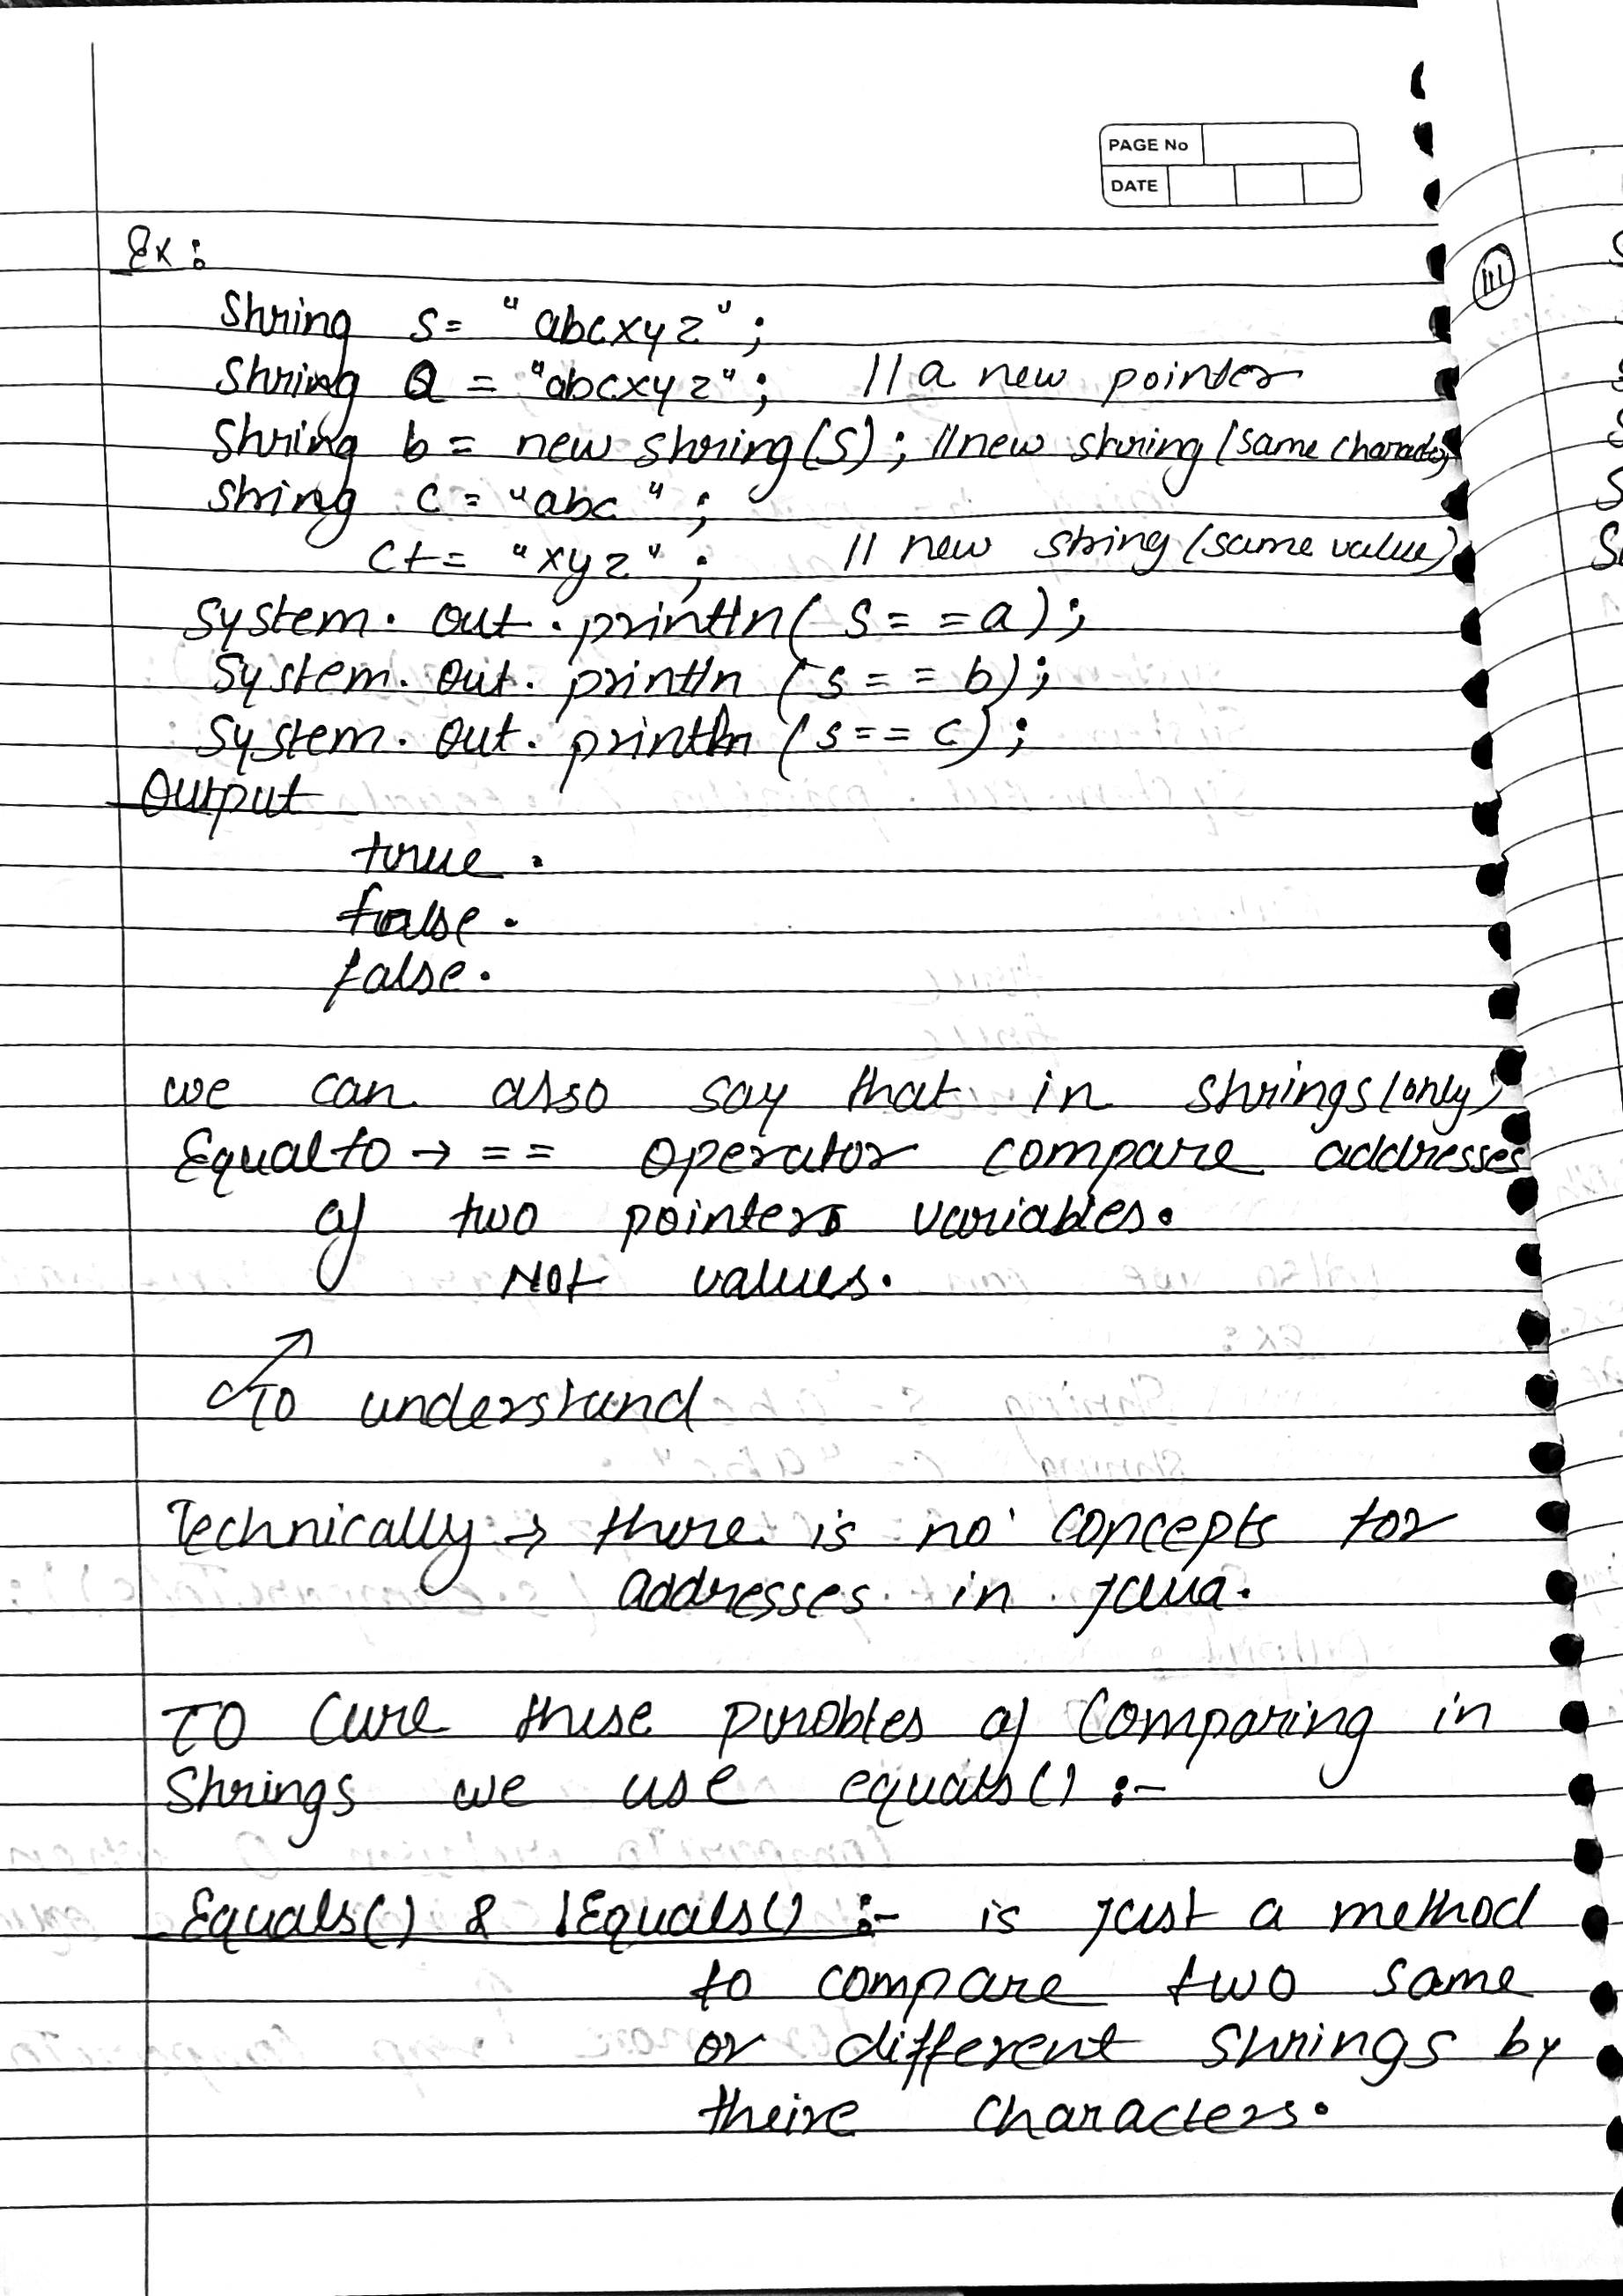 PAGE No
DATE
Ex:
String s= "abcxyz";
String a = "abcxyz"; // a new pointer
String b = new string(s); // new string (same character)
String c = "abc";
c += "xyz"; // new string (same value)
System.out.println( s==a);
System.out.println (s==b);
System.out.println (s==c);
Output
true.
false.
false.
we can also say that in strings (only)
Equal to → == operator compare addresses
of two pointers variables.
Not values.
To understand
Technically → there is no concepts for
addresses in java.
To cure these probles of comparing in
Strings we use equals() :-
Equals() & !Equals() :- is just a method
to compare two same
or different strings by
theire characters.